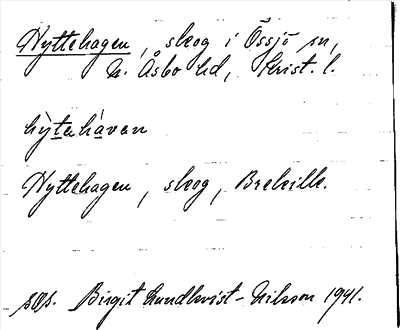 Hyttehagen, skog i Össjö sn,
N. Åsbo hd, Krist. l.
hỳtehàvan
Hyttehagen, skog, Brelville.
Birgit Lundkvist-Nilsson 1941.